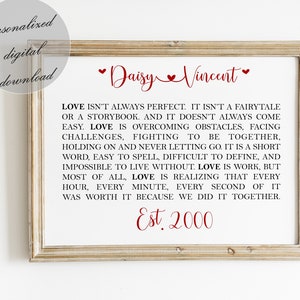 personalized
digital
download
Daisy Vincent
LOVE ISN'T ALWAYS PERFECT. IT ISN'T A FAIRYTALE
OR A STORYBOOK. AND IT DOESN'T ALWAYS COME
EASY. LOVE IS OVERCOMING OBSTACLES, FACING
CHALLENGES, FIGHTING TO BE TOGETHER,
HOLDING ON AND NEVER LETTING GO. IT IS A SHORT
WORD, EASY TO SPELL, DIFFICULT TO DEFINE, AND
IMPOSSIBLE TO LIVE WITHOUT. LOVE IS WORK, BUT
MOST OF ALL, LOVE IS REALIZING THAT EVERY
HOUR, EVERY MINUTE, EVERY SECOND OF IT
WAS WORTH IT BECAUSE WE DID IT TOGETHER.
Est. 2000